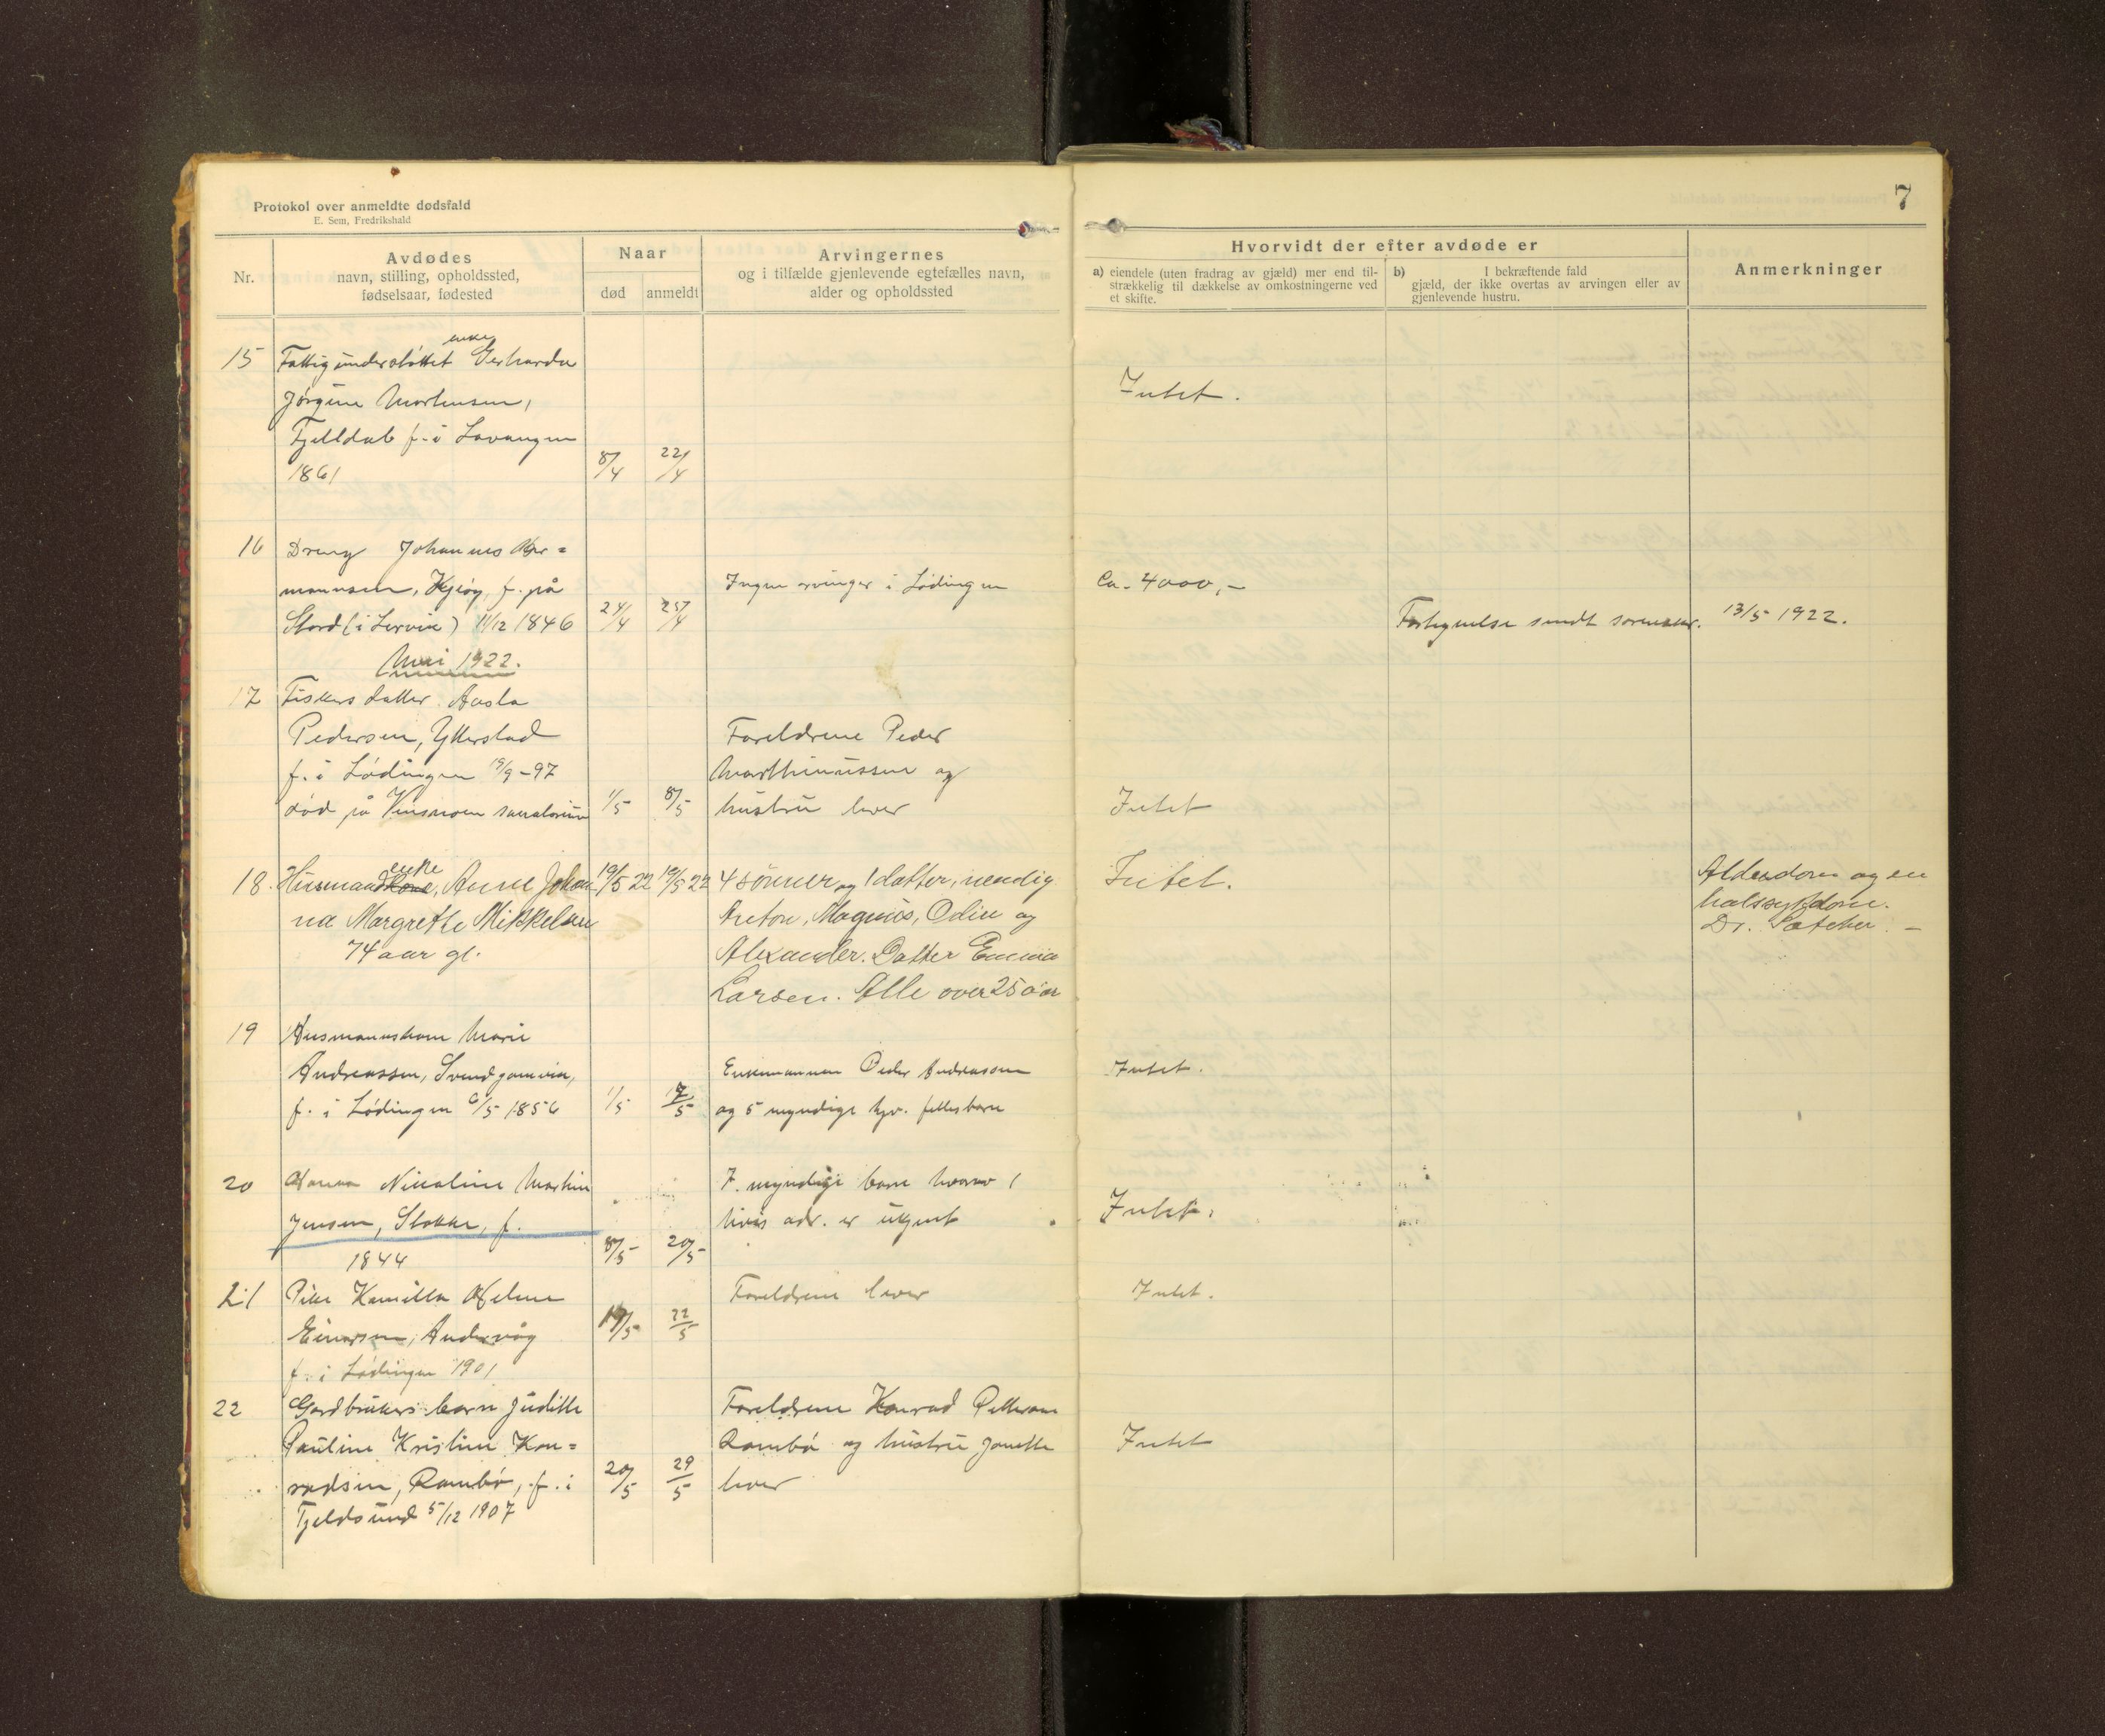 Protokol over anmeldte dødsfald
E. Sem, Fredrikshald
7
Nr.
Avdødes
navn, stilling, opholdssted,
fødselsaar, fødested
Naar
død
anmeldt
Arvingernes
og i tilfælde gjenlevende egtefælles navn,
alder og opholdssted
Hvorvidt der efter avdøde er
a) eiendele (uten fradrag av gjæld) mer end til-
strækkelig til dækkelse av omkostningerne ved
et skifte.
b) I bekræftende fald
gjæld, der ikke overtas av arvingen eller av
gjenlevende hustru.
Anmerkninger
enke
15 Fattigunderstøttet Gerharda
Jørgine Martinsen,
Fjelldal f. i Lavangen
1861
8/4 22/4
Intet.
16 Dreng Johannes Her=
mannsen, Kjeøy, f. på
Stord (i Lervik) 11/12 1846
24/4 25/4
Ingen arvinger i Lødingen
Ca. 4000,-
Fortegnelse sendt sorenskr. 13/5 1922.
Mai 1922.
17 Fiskers datter Aasla
Pedersen, Ytterstad
f. i Lødingen 15/9-97
død på Vensmoen sanatorium
1/5 8/5
Foreldrene Peder
Marthinussen og
hustru lever
Intet
18. Husmandskone, Anne Johan
enke
na Margrette Mikkelsen
74 aar gl.
19/5 22 19/5 22
4 sønner og 1 datter, nemlig
Anton, Magnus, Odin og
Alexander. Datter Emma
Larsen. Alle over 25 aar
Intet.
Alderdom og en
halssykdom.
Dr.
19 Husmannskone Marie
Andreassen, Svendgamvia,
f. i Lødingen 6/5 1856
1/5 7/5
Enkemannen Peder Andreassen
og 5 myndige hjv. fellesbarn
Intet.
20 Hanna Nicoline Martin
Jensen, Stokke, f.
1844
8/5 20/5
7 myndige barn hvorav 1
hvis adr. er ukjent
Intet.
21 Pike Kamilla Helene
Einarsen, Andervåg
f. i Lødingen 1901
19/5 22/5
Foreldrene lever
Intet.
22 Gardbrukers barn Judithe
Pauline Kristine Kon=
radsen, Rambø, f. i
Tjeldsund 5/12 1907
20/5 29/5
Foreldrene Konrad Pettersen
Rambø og hustru Janette
lever
Intet